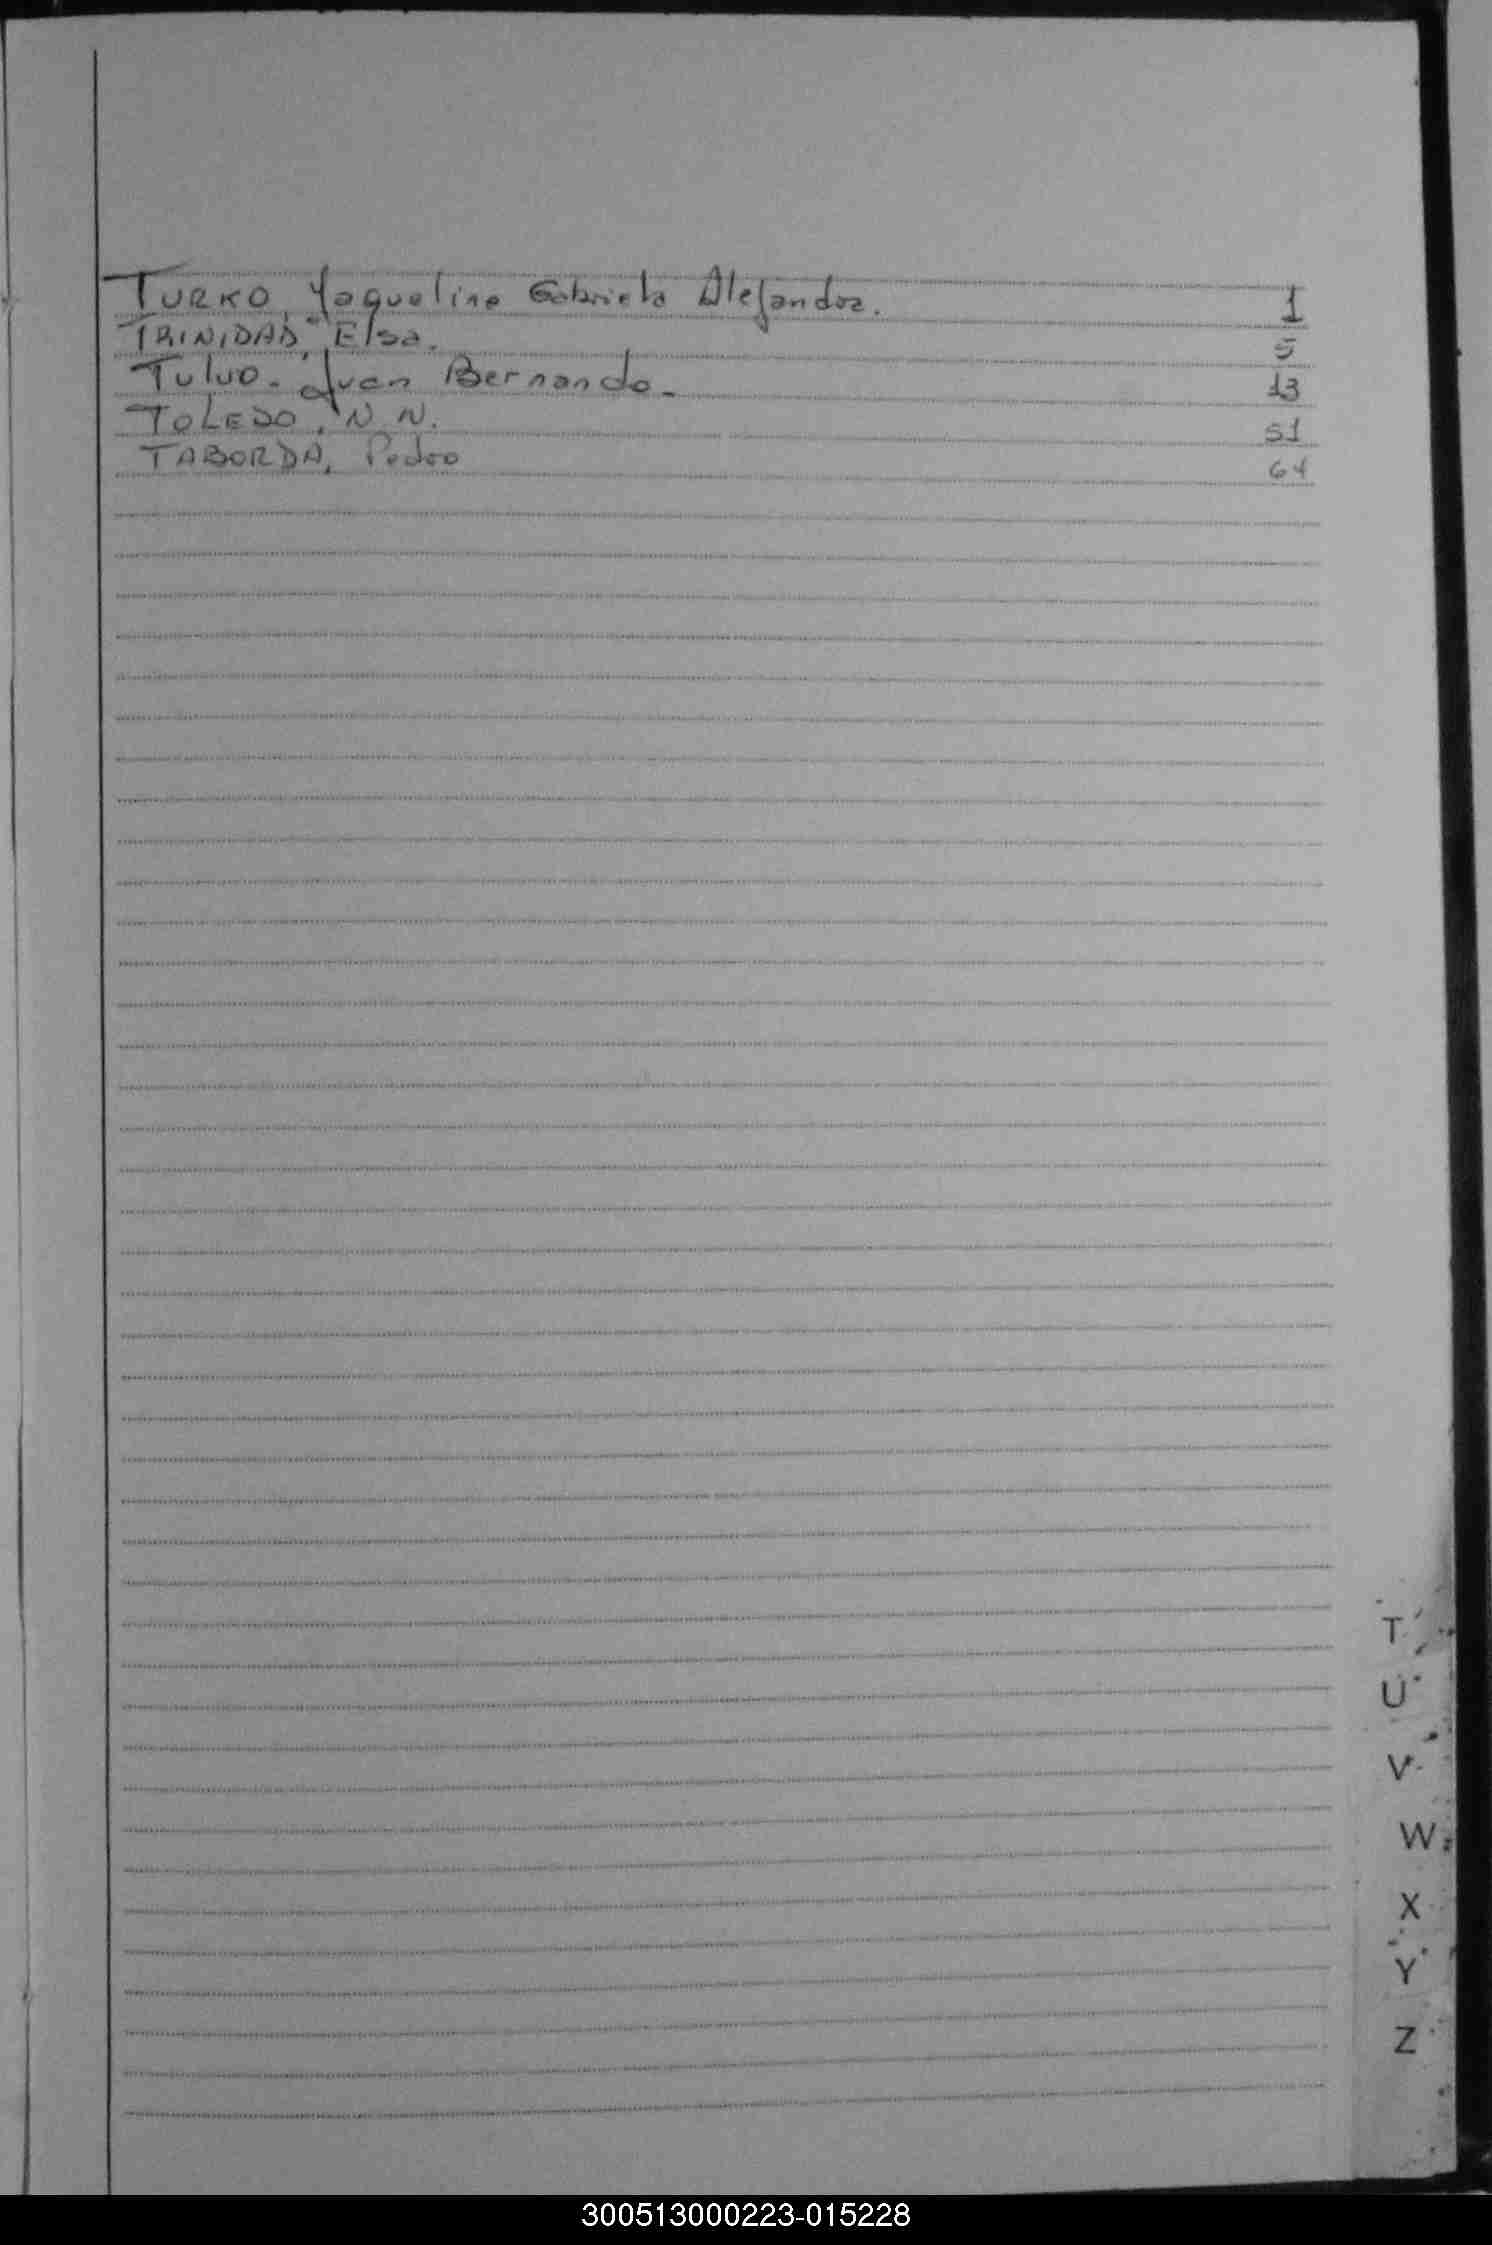 TURKO, Yaqueline Gabriela Alejandra. 1
TRINIDAD, Elsa. 5
Tulvo. Juan Bernando. 13
TOLEDO, N.N. 51
TABORDA, Pedro 64
T
U
V
W
X
Y
Z
300513000223-015228